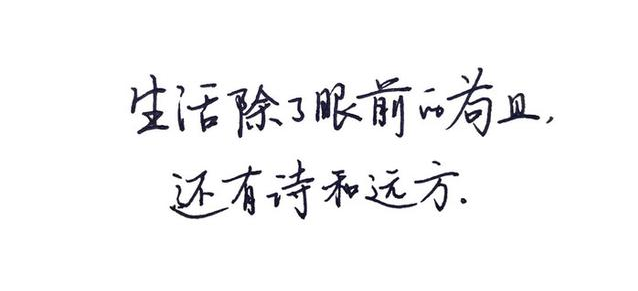 生活除了眼前的苟且,
还有诗和远方.